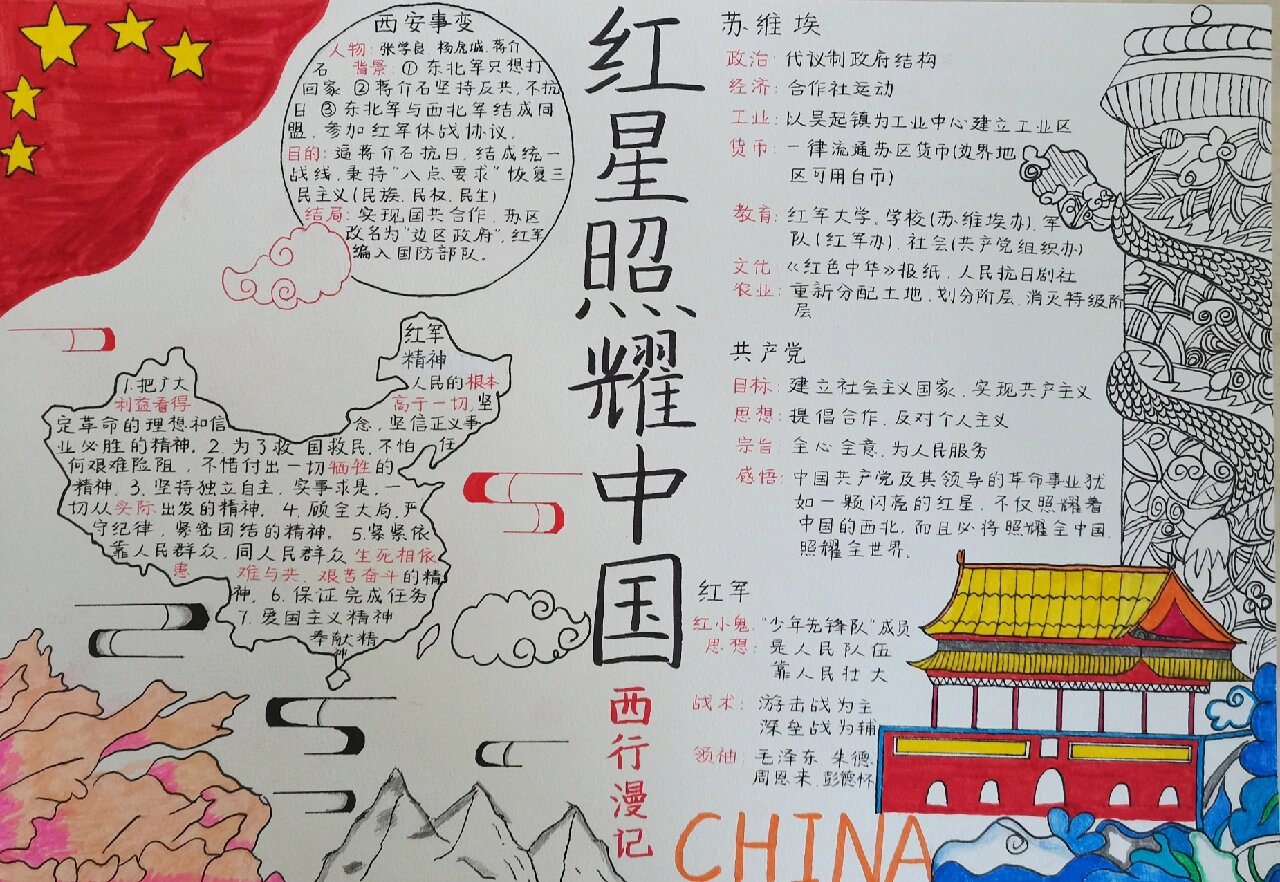 西安事变
人物: 张学良、杨虎城、蒋介
石 背景: ① 东北军只想打
回家 ②蒋介石坚持反共,不抗
日 ③东北军与西北军结成同
盟,参加红军休战协议。
目的: 逼蒋介石抗日,结成统一
战线,秉持“八点要求”恢复三
民主义(民族、民权、民生)
结局: 实现国共合作,苏区
改名为“边区政府”,红军
编入国防部队。
红军
精神
1. 把广大人民的根本
利益看得高于一切,坚
定革命的理想和信念,坚信正义事
业必胜的精神。2. 为了救国救民,不怕任
何艰难险阻,不惜付出一切牺牲的
精神。3. 坚持独立自主,实事求是,一
切从实际出发的精神。4. 顾全大局,严
守纪律,紧密团结的精神。5. 紧紧依
靠人民群众,同人民群众生死相依
患难与共,艰苦奋斗的精
神。6. 保证完成任务
7. 爱国主义精神
奉献精
神
红星照耀中国
西行漫记
苏维埃
政治: 代议制政府结构
经济: 合作社运动
工业: 以吴起镇为工业中心建立工业区
货币: 一律流通苏区货币(边界地
区可用白币)
教育: 红军大学。学校(苏维埃办)、军
队(红军办)、社会(共产党组织办)
文化: 《红色中华》报纸、人民抗日剧社
农业: 重新分配土地,划分阶层,消灭特级阶
层
共产党
目标: 建立社会主义国家,实现共产主义
思想: 提倡合作,反对个人主义
宗旨: 全心全意,为人民服务
感悟: 中国共产党及其领导的革命事业犹
如一颗闪亮的红星,不仅照耀着
中国的西北,而且必将照耀全中国,
照耀全世界。
红军
红小鬼: “少年先锋队”成员
思想: 是人民队伍
靠人民壮大
战术: 游击战为主
深垒战为辅
领袖: 毛泽东、朱德、
周恩来、彭德怀
CHINA